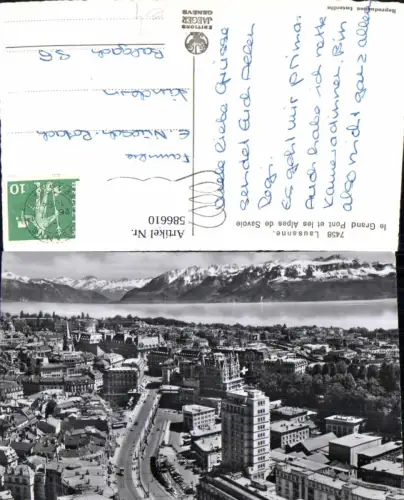 Reproduction interdite
EDITIONS
JAEGER
GENÈVE
7458 Lausanne.
le Grand Pont et les Alpes de Savoie
Viele liebe Grüsse
sendet Euch Allen
Es geht mir prima.
Auch habe ich nette
Kameradinnen. Bin
also nicht ganz allein
Familie
E. Nüesch-
Balgach SG
10
Artikel Nr.
586610